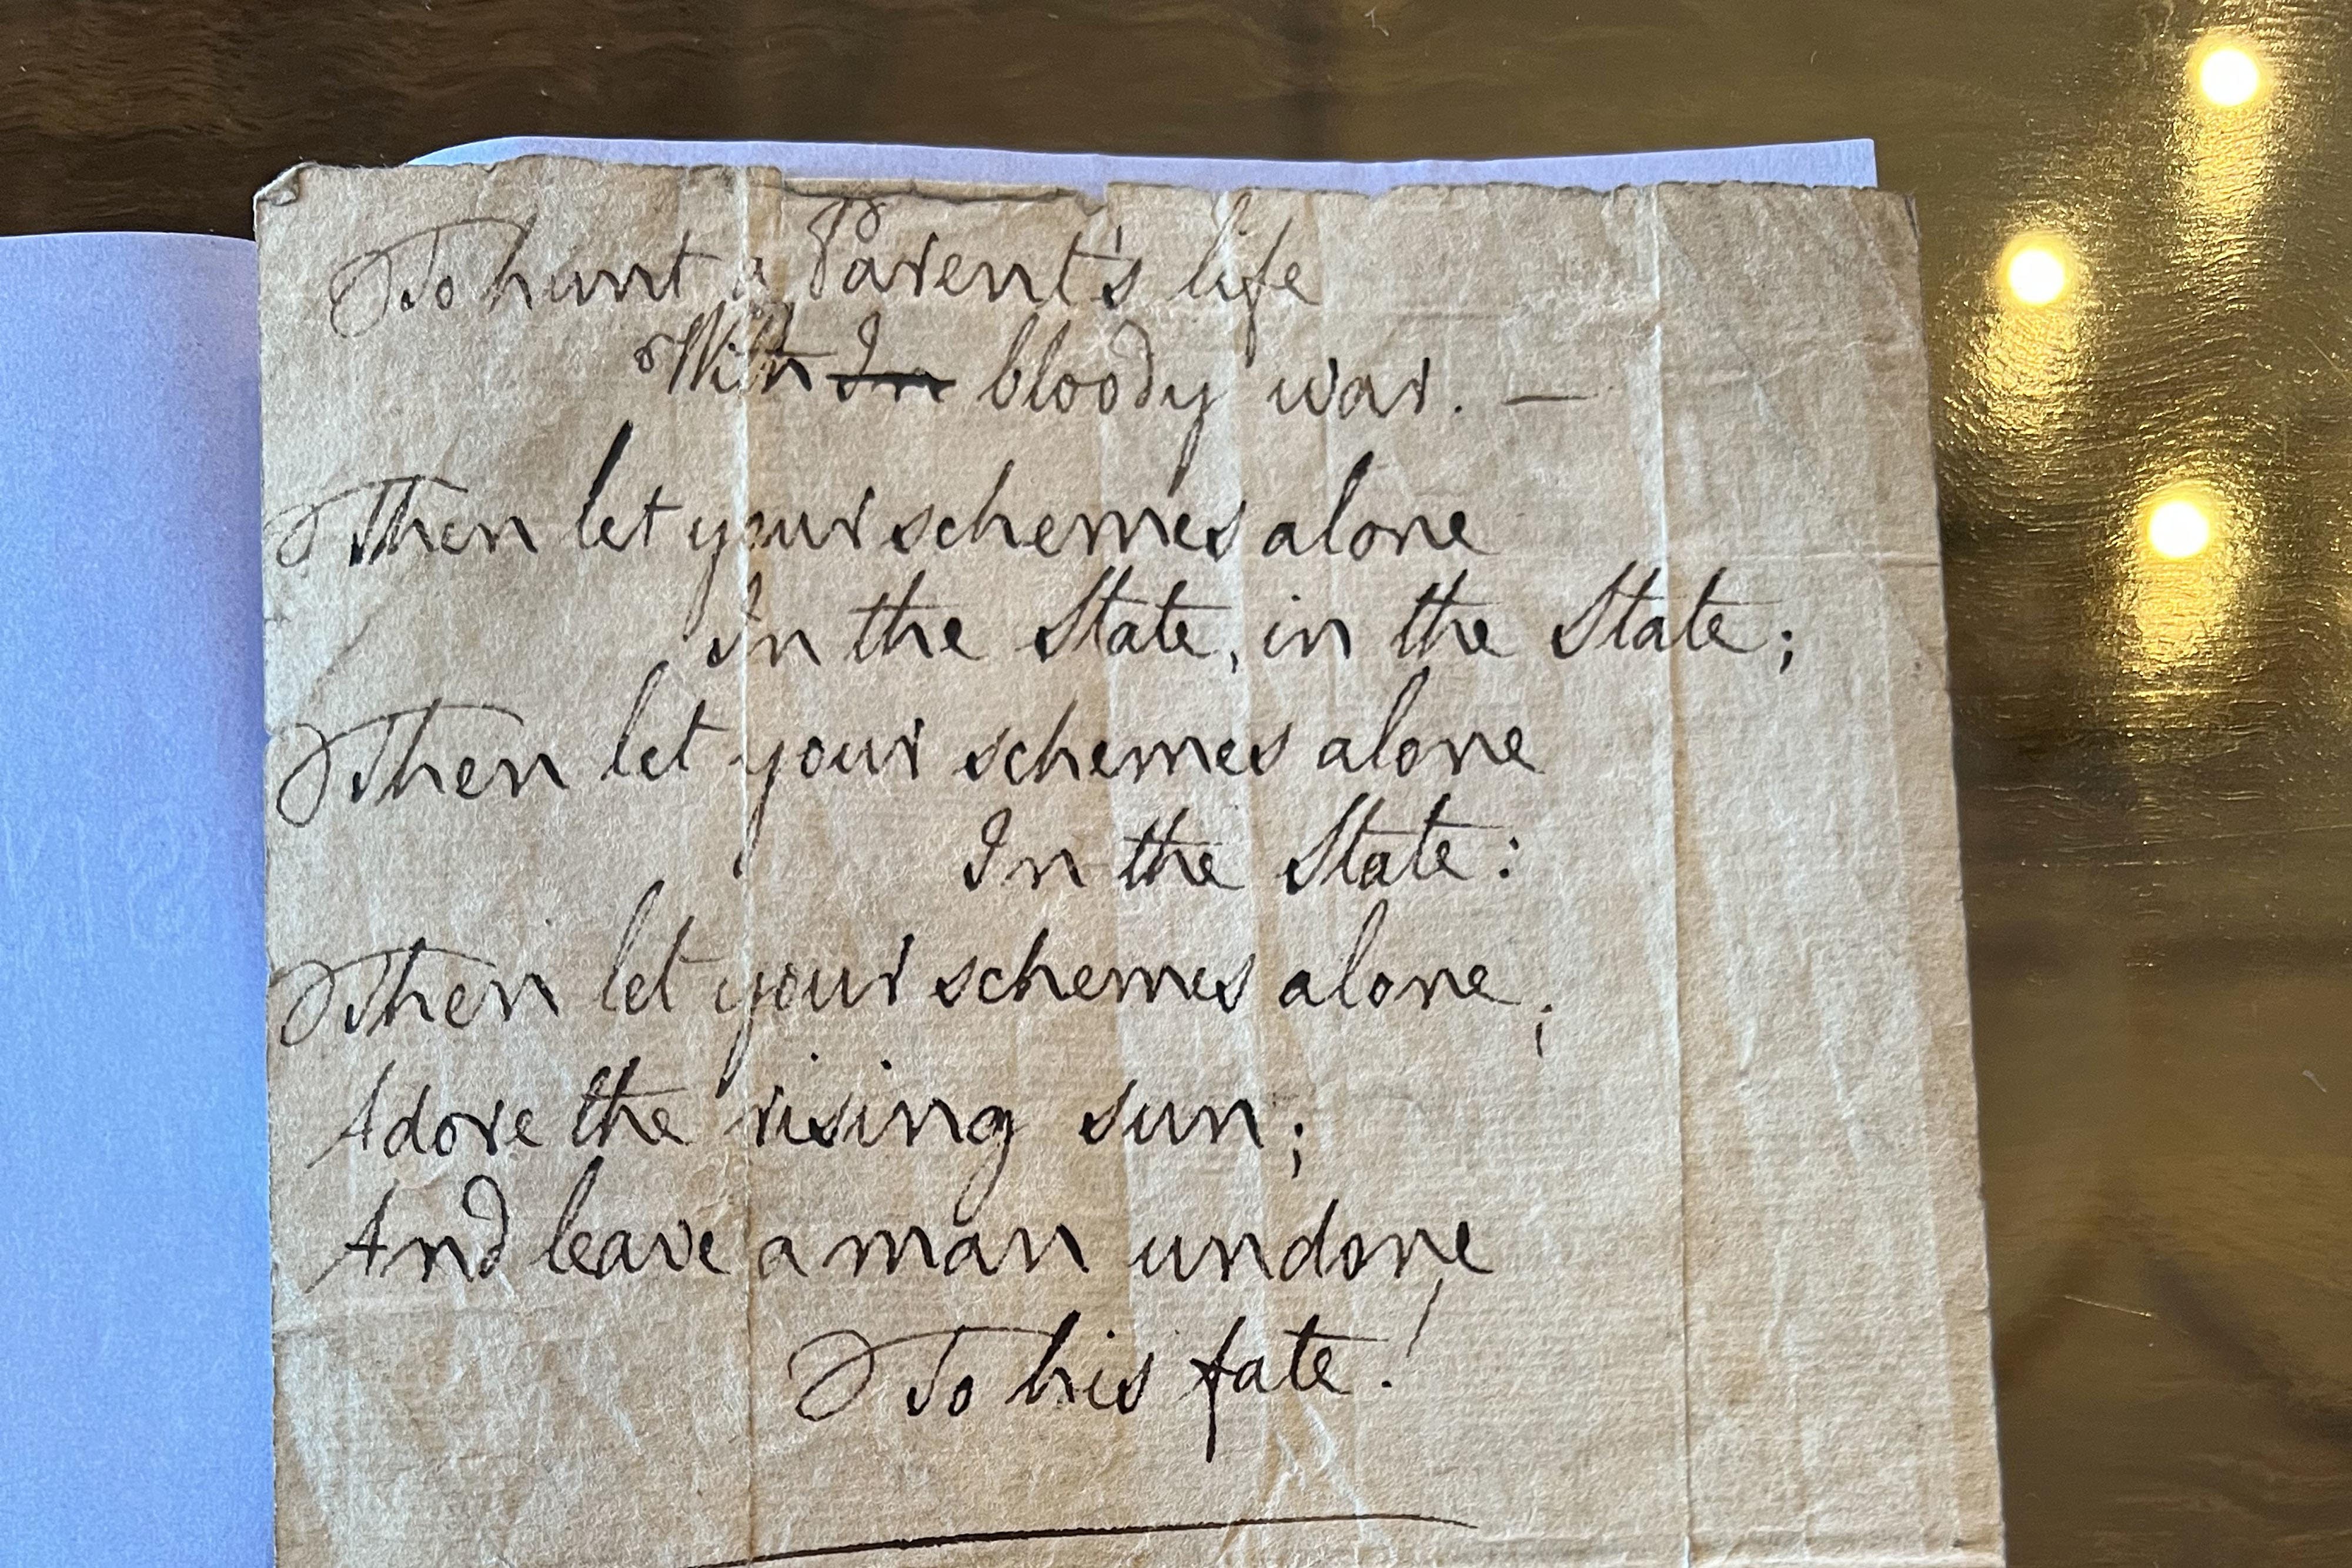 To hunt a Parent's life
With In bloody war. —
Then let your schemes alone
In the State, in the State;
Then let your schemes alone
In the State:
Then let your schemes alone;
Adore the rising sun;
And leave a man undone
To his fate!